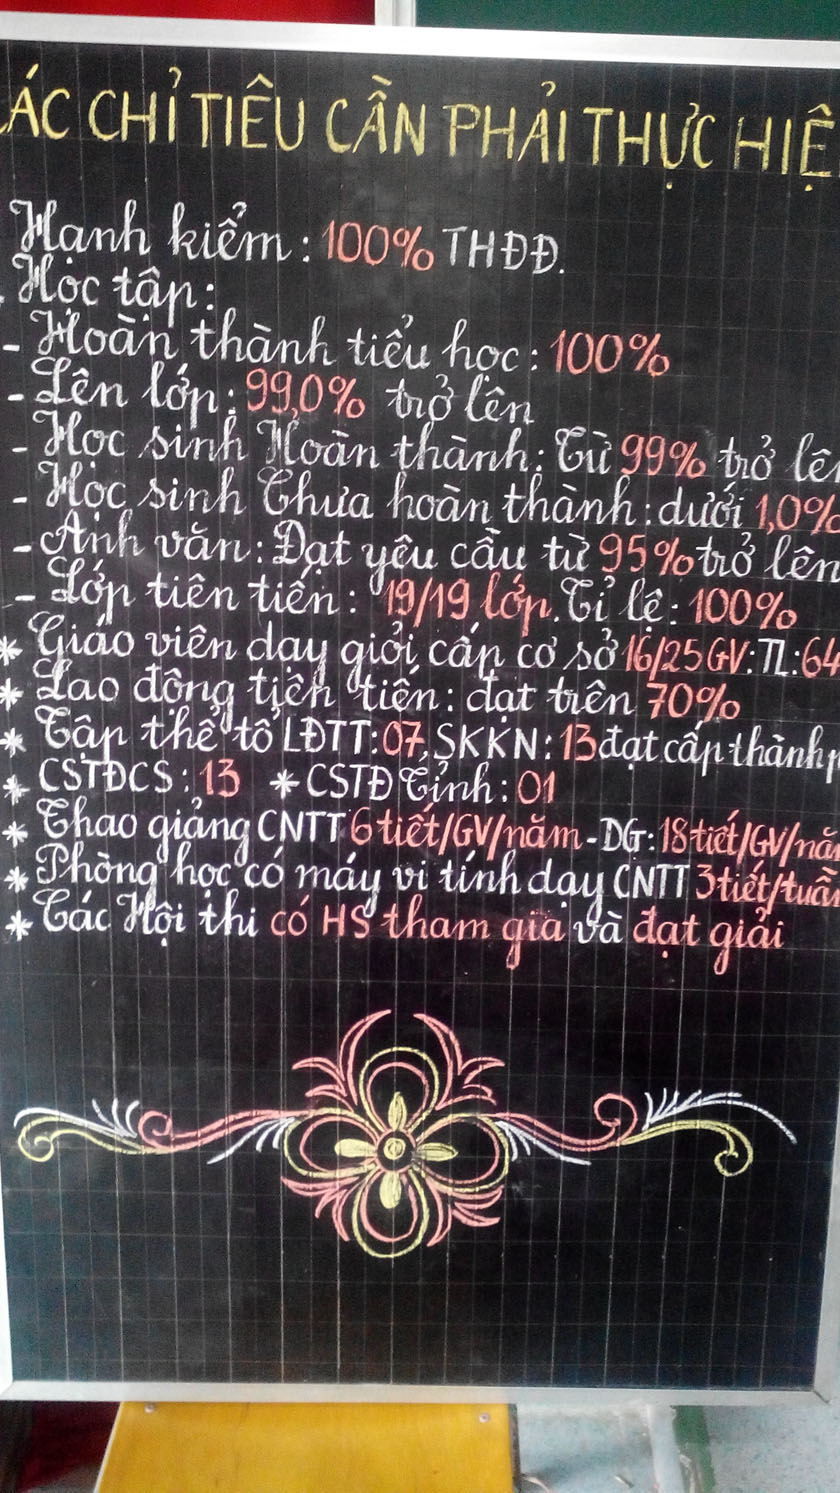 ÁC CHỈ TIÊU CẦN PHẢI THỰC HIỆ
Hạnh kiểm: 100% THĐĐ.
Học tập:
- Hoàn thành tiểu học: 100%
- Lên lớp: 99,0% trở lên
- Học sinh Hoàn thành: Từ 99% trở lê
- Học sinh Chưa hoàn thành: dưới 1,0%
- Anh văn: Đạt yêu cầu từ 95% trở lên
- Lớp tiên tiến: 19/19 lớp. Tỉ lệ: 100%
* Giáo viên dạy giỏi cấp cơ sở 16/25 GV: TL: 64
* Lao động tiên tiến: đạt trên 70%
* Tập thể tổ LĐTT: 07, SKKN: 13 đạt cấp thành p
* CSTĐCS: 13 * CSTĐ Tỉnh: 01
* Thao giảng CNTT 6 tiết/GV/năm - DG: 18 tiết/GV/nă
* Phòng học có máy vi tính dạy CNTT 3 tiết/tuần
* Các Hội thi có HS tham gia và đạt giải